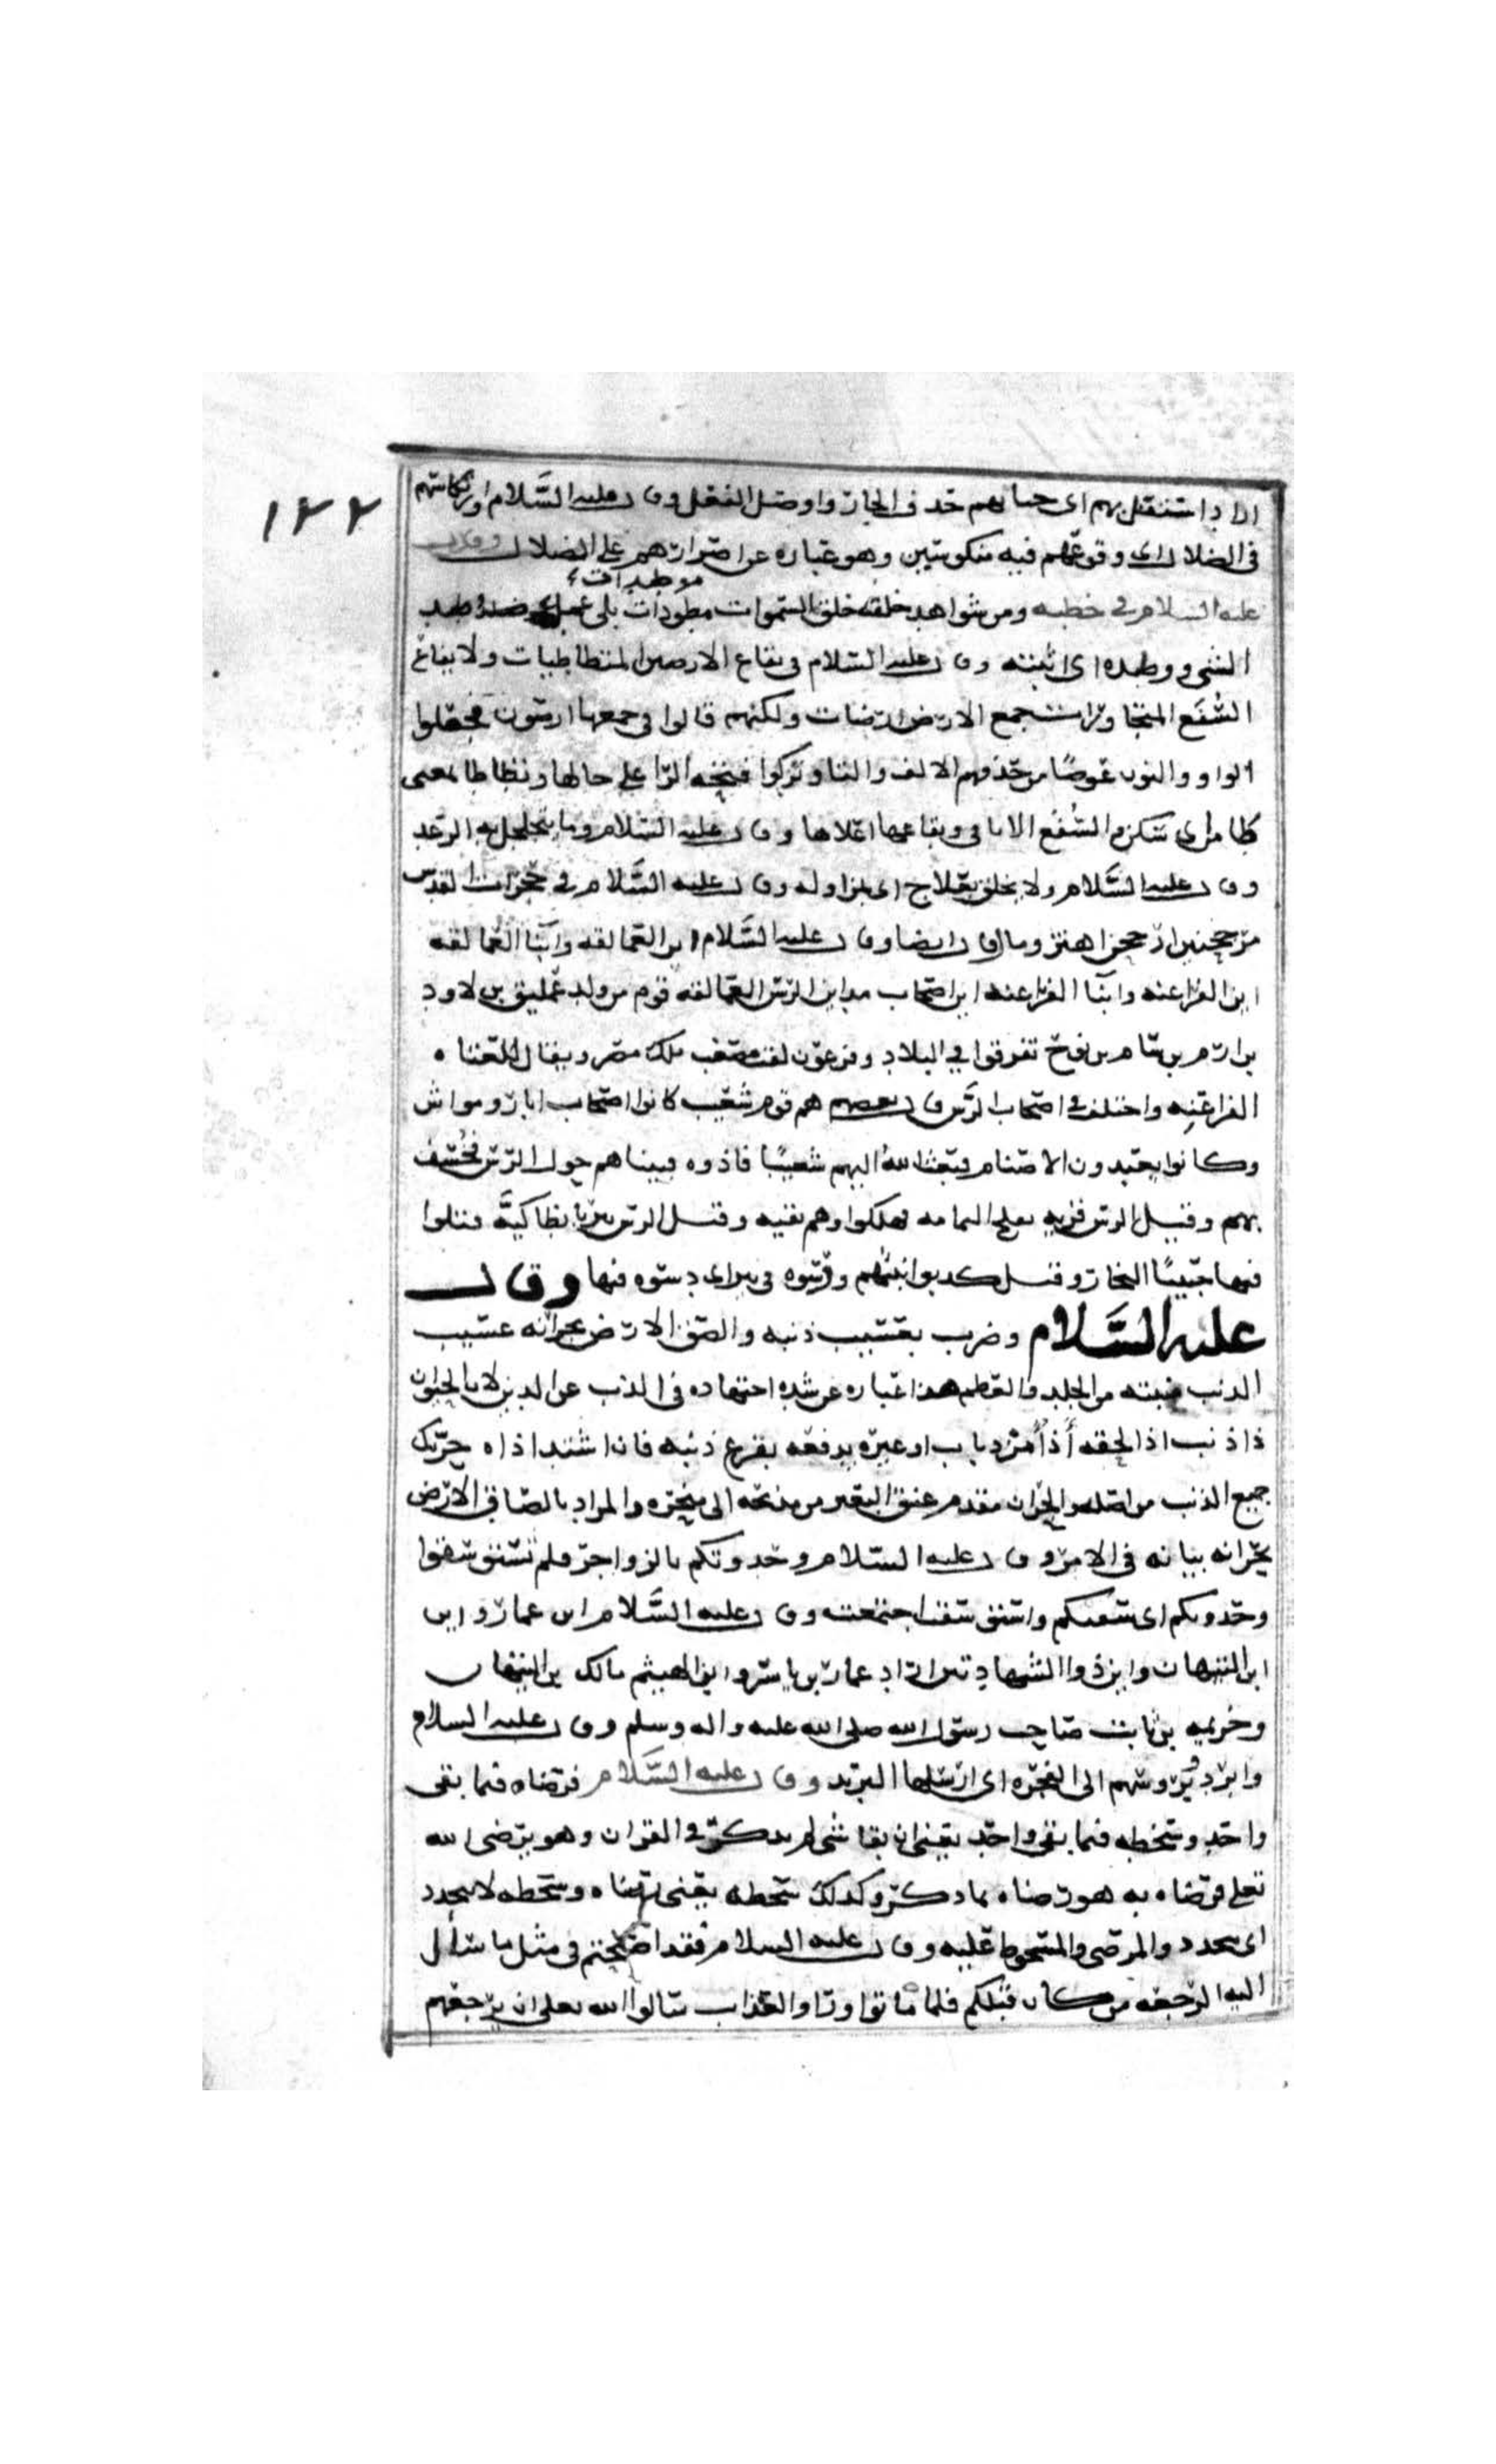 ١٢٢
اراد استنقل بهم اى حسابهم حذف الجار واوصل الفعل وقال عليه السَّلام وارتكاسهم
فى الضلال اى وقوعهم فيه منكوسين وهو عباره عن اصرارهم على الضلال وقال
موطدات
عليه السلام في خطبه ومن شواهد خلقه خلق السموات مطودات بلى عمل وطد
الشى ووطده اى اثبته وقال عليه السّلام فى بقاع الارضين المتطاطيات ولا يفاع
السُّفع المتجاورات جمع الارض ارضات ولكنهم قالوا في جمعها ارضون فجعلوا
الواو والنون عوضًا من حذفهم الالف والتا وتركوا فتحه الرّا على حالها وتطاطا بمعنى
طامن اى سكن والسُّفع الاثافى ويفاعها اعلاها وقال عليه السَّلام وما يتجلجل به الرعد
وقال عليه السَّلام ولا يخلق بعلاج اى بمزاوله وقال عليه السَّلام في حجرات القدس
مرجحنين ارجحن اهتز ومال وقال ايضا وقال عليه السَّلام اين العمالقه وابنا العمالقه
اين الفراعنه وابنا الفراعنه اين اصحاب مداين الرّس العمالقه قوم من ولد عمليق بن لاود
بن ارم بن سام بن نوح تفرقوا في البلاد وفرعون لقب مصعب ملك مصر ويقال للعتاه
الفراعنه واختلف في اصحاب الرَّس قال بعضهم هم قوم شعيب كانوا اصحاب ابار ومواش
وكانوا يعبدون الاصنام فبعث الله اليهم شعيبًا فاذوه فبيناهم حول الرّس فخسف
بهم وقيل الرس قريه بفلج اليمامه فهلكوا وهم بقيه وقيل الرس بير بانطاكيَّه قتلوا
فيها حبيبًا النجار وقيل كذبوا نبيّهم ورسّوه في بير اى دسّوه فيها وقال
عليه السَّلام وضرب بعسيب ذنبه والصق الارض بجرانه عسيب
الذنب منبته من الجلد والعظم هذا عباره عن شده اجتهاده فى الذب عن الدين لان الحيوان
ذا ذنب اذا لحقه أذاً من ذباب او غيره يدفعه بقرع ذنبه فان اشتد اذاه حرّك
جميع الذنب من اصله والجران مقدم عنق البعير من مذبحه الى منحره والمراد بالصاق الارض
بجرانه ثباته فى الامر وقال عليه السّلام وحدوتكم بالزواجر فلم تستوسقوا
وحدوتكم اى سقتكم واستوسقت اجتمعت وقال عليه السَّلام اين عمار واين
ابن التيهان واين ذوا الشهادتين اراد عمار بن ياسر وابن الهيثم مالك بن التيهان
وخزيمه بن ثابت صاحب رسول الله صلى الله عليه واله وسلم وقال عليه السلام
وابرد بُروسهم الى الفجره اى ارسلها البريد وقال عليه السَّلام فرضاه فيما بقى
واحد وسخطه فيما بقى واحد يعنى ان بقا شى لم يذكر في القران وهو يرضى الله
تعلى فرضاه به هو رضاه بما ذكر وكذلك سخطه يعنى رضاه وسخطه لا يتجدد
اى تجدد والمرضى والمسخوط عليه وقال عليه السلام فقد اصبحتم فى مثل ما سأل
اليه الرجعه من كان قبلكم فلما ماتوا وراوا العذاب سالوا الله تعلى ان يرجعهم